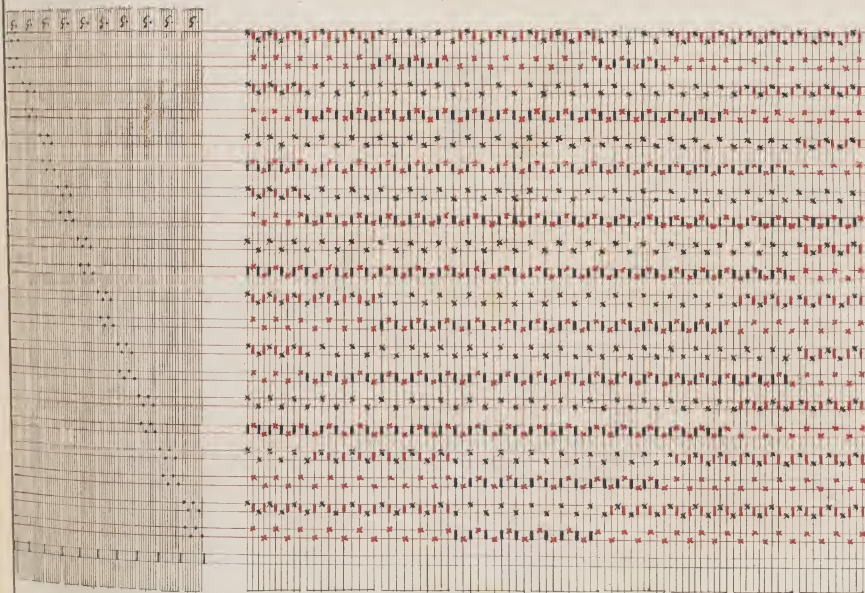 5. 5. 5. 5. 5. 5. 5. 5. 5. 5.